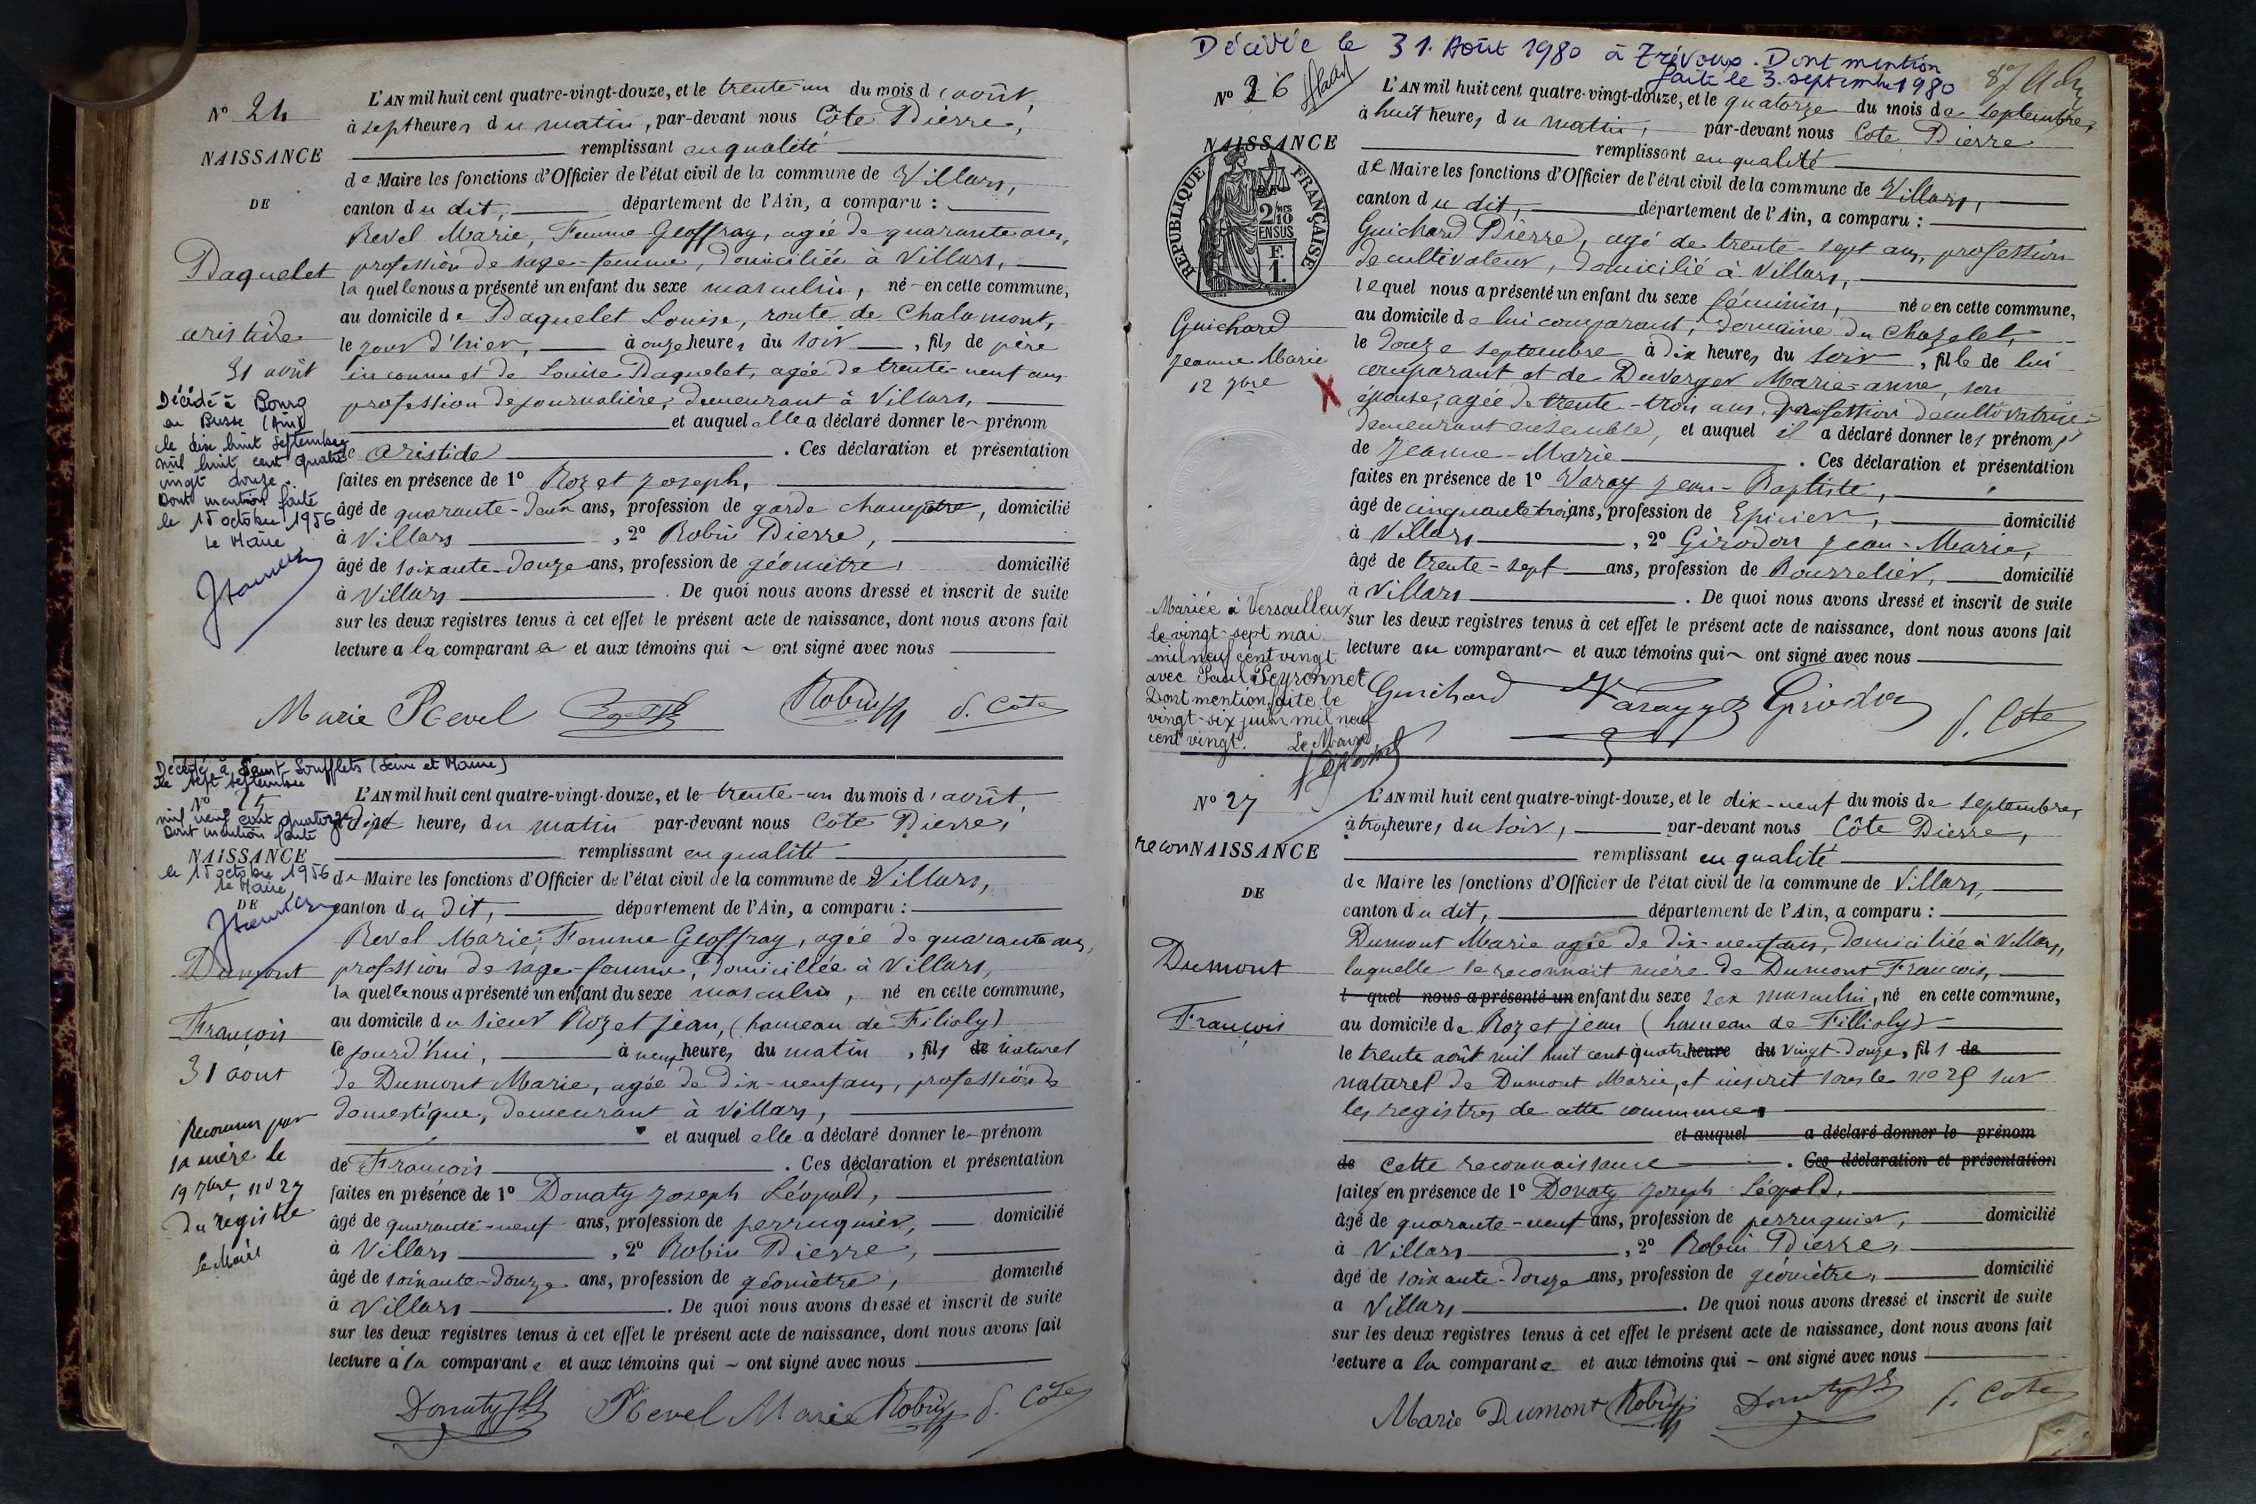 N° 24
NAISSANCE
DE
Paquelet
aristide
31 août
Décédé à Bourg
en Bresse (Ain)
le dix huit Septembre
mil huit cent quatre
vingt douze.
Dont mention faite
le 15 octobre 1956
Le Maire
L'AN mil huit cent quatre-vingt-douze, et le trente-un du mois d'août,
à sept heures du matin, par-devant nous Côte Pierre,
remplissant en qualité
de Maire les fonctions d'Officier de l'état civil de la commune de Villars,
canton du dit, département de l'Ain, a comparu :
Revel Marie, Femme Geoffray, agée de quarante ans,
profession de sage-femme, domiciliée à Villars,
la quelle nous a présenté un enfant du sexe masculin, né en cette commune,
au domicile de Paquelet Louise, route de Chalamont,
le jour d'hier, à onze heures du soir, fils de père
inconnu et de Louise Paquelet, agée de trente-neuf ans
profession de journalière, demeurant à Villars,
et auquel elle a déclaré donner le prénom
de aristide. Ces déclaration et présentation
faites en présence de 1° Rozet Joseph,
âgé de quarante-deux ans, profession de garde champêtre, domicilié
à Villars, 2° Robin Pierre,
âgé de soixante-douze ans, profession de géomètre, domicilié
à Villars. De quoi nous avons dressé et inscrit de suite
sur les deux registres tenus à cet effet le présent acte de naissance, dont nous avons fait
lecture a la comparante et aux témoins qui ont signé avec nous
Marie Revel Robin P. Côte
Décédé à Saint Soupplets (Seine et Marne)
le sept septembre
N° 25
mil neuf cent quatorze
Dont mention faite
NAISSANCE
le 15 octobre 1956
le Maire,
DE
Dumont
François
31 aout
Reconnu par
sa mère le
19 7bre, n° 27
du registre
Le Maire
L'AN mil huit cent quatre-vingt-douze, et le trente-un du mois d'août,
à dix heures du matin par-devant nous Côte Pierre,
remplissant en qualité
de Maire les fonctions d'Officier de l'état civil de la commune de Villars,
canton du dit, département de l'Ain, a comparu :
Revel Marie, Femme Geoffray, agée de quarante ans,
profession de sage-femme, domiciliée à Villars,
la quelle nous a présenté un enfant du sexe masculin, né en cette commune,
au domicile du sieur Rozet jean, (hameau de Filioly)
ce jourd'hui, à neuf heures du matin, fils de naturel
de Dumont Marie, agée de dix-neuf ans, profession de
domestique, demeurant à Villars,
et auquel elle a déclaré donner le prénom
de François. Ces déclaration et présentation
faites en présence de 1° Donaty Joseph Léopold,
âgé de quarante-neuf ans, profession de perruquier, domicilié
à Villars, 2° Robin Pierre,
âgé de soixante-douze ans, profession de géomètre, domicilié
à Villars. De quoi nous avons dressé et inscrit de suite
sur les deux registres tenus à cet effet le présent acte de naissance, dont nous avons fait
lecture à la comparante et aux témoins qui ont signé avec nous
Donaty Revel Marie Robin P. Côte
Décédée le 31. Août 1980 à Trévoux. Dont mention
faite le 3. septembre 1980
N° 26
NAISSANCE
RÉPUBLIQUE FRANÇAISE
2/10
EN SUS
F.
1.
Guichard
Jeanne Marie
12 7bre
X
Mariée à Versailleux
le vingt-sept mai
mil neuf cent vingt
avec Paul Peyronnet
Dont mention faite le
vingt-six juin mil neuf
cent vingt. Le Maire
L'AN mil huit cent quatre-vingt-douze, et le quatorze du mois de septembre,
à huit heures du matin, par-devant nous Cote Pierre
remplissant en qualité
de Maire les fonctions d'Officier de l'état civil de la commune de Villars,
canton du dit, département de l'Ain, a comparu :
Guichard Pierre, agé de trente-sept ans, profession
de cultivateur, domicilié à Villars,
lequel nous a présenté un enfant du sexe féminin, née en cette commune,
au domicile de lui comparant, domaine du Chazelet,
le douze septembre à dix heures du soir, fille de lui
comparant et de Duverger Marie-anne, son
épouse, agée de trente-trois ans, profession de cultivatrice
demeurant ensemble, et auquel il a déclaré donner les prénoms
de Jeanne-Marie. Ces déclaration et présentation
faites en présence de 1° Varay Jean-Baptiste,
âgé de cinquante-trois ans, profession de Epicier, domicilié
à Villars, 2° Girodon Jean-Marie,
âgé de trente-sept ans, profession de Bourrelier, domicilié
à Villars. De quoi nous avons dressé et inscrit de suite
sur les deux registres tenus à cet effet le présent acte de naissance, dont nous avons fait
lecture au comparant et aux témoins qui ont signé avec nous
Guichard Varay Girodon P. Cote
N° 27
reconNAISSANCE
DE
Dumont
François
L'AN mil huit cent quatre-vingt-douze, et le dix-neuf du mois de septembre,
à trois heures du soir, par-devant nous Côte Pierre,
remplissant en qualité
de Maire les fonctions d'Officier de l'état civil de la commune de Villars,
canton du dit, département de l'Ain, a comparu :
Dumont Marie agée de dix-neuf ans, domiciliée à Villars,
laquelle se reconnait mère de Dumont François,
l quel nous a présenté un enfant du sexe masculin, né en cette commune,
au domicile de Rozet jean (hameau de Fillioly)
le trente août mil huit cent quatre heure du vingt-douze, fils de
naturel de Dumont Marie, et inscrit sous le n° 25 sur
les registres de cette commune
et auquel a déclaré donner le prénom
de cette reconnaissance. Ces déclaration et présentation
faites en présence de 1° Donaty Joseph Léopold,
âgé de quarante-neuf ans, profession de perruquier, domicilié
à Villars, 2° Robin Pierre,
âgé de soixante-douze ans, profession de géomètre, domicilié
a Villars. De quoi nous avons dressé et inscrit de suite
sur les deux registres tenus à cet effet le présent acte de naissance, dont nous avons fait
lecture a la comparante et aux témoins qui ont signé avec nous
Marie Dumont Robin Donaty P. Cote